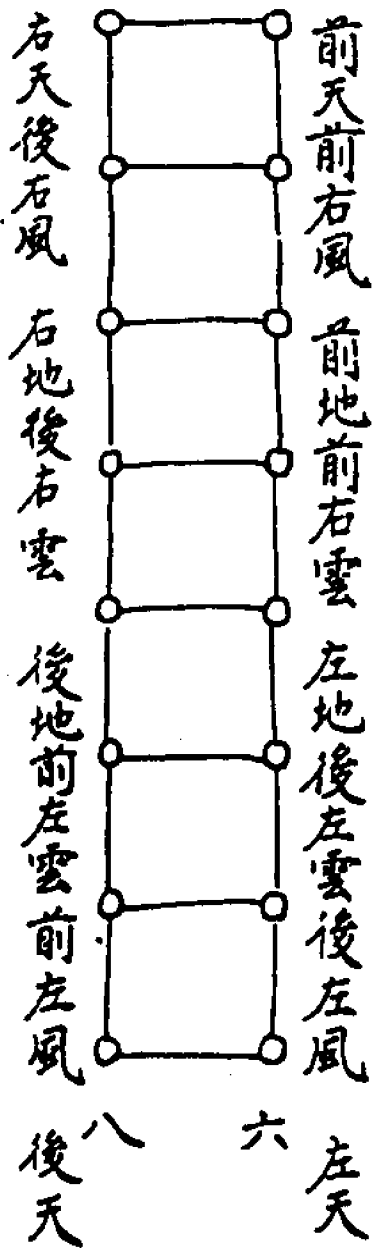 前天前右風
前地前右雲
左地後左雲後左風
左天
六
八
右天後右風
右地後右雲
後地前左雲前左風
後天